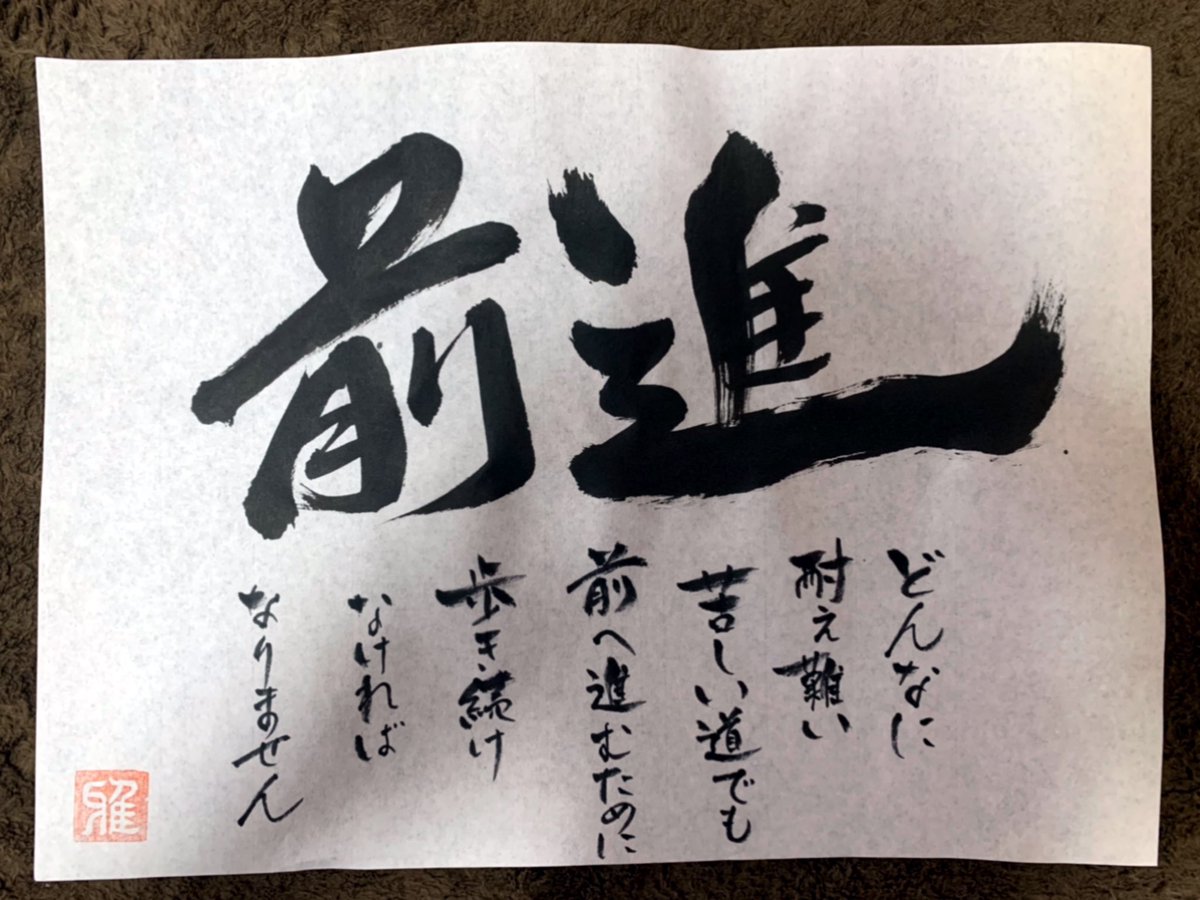 前進
どんなに
耐え難い
苦しい道でも
前へ進むために
歩き続け
なければ
なりません
雅